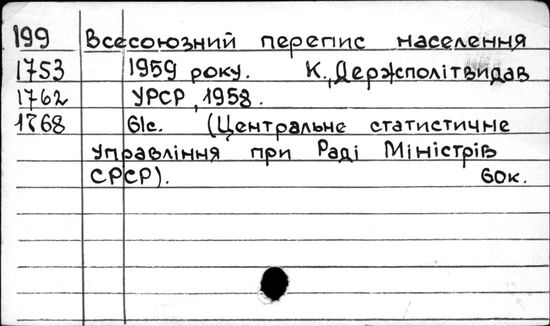 199 Всесоюзний перепис населення
1753 1959 року. К., Держполітвидав
1762 УРСР, 1958.
1768 61с. (Центральне статистичне
управління при Раді Міністрів
СРСР). 60к.